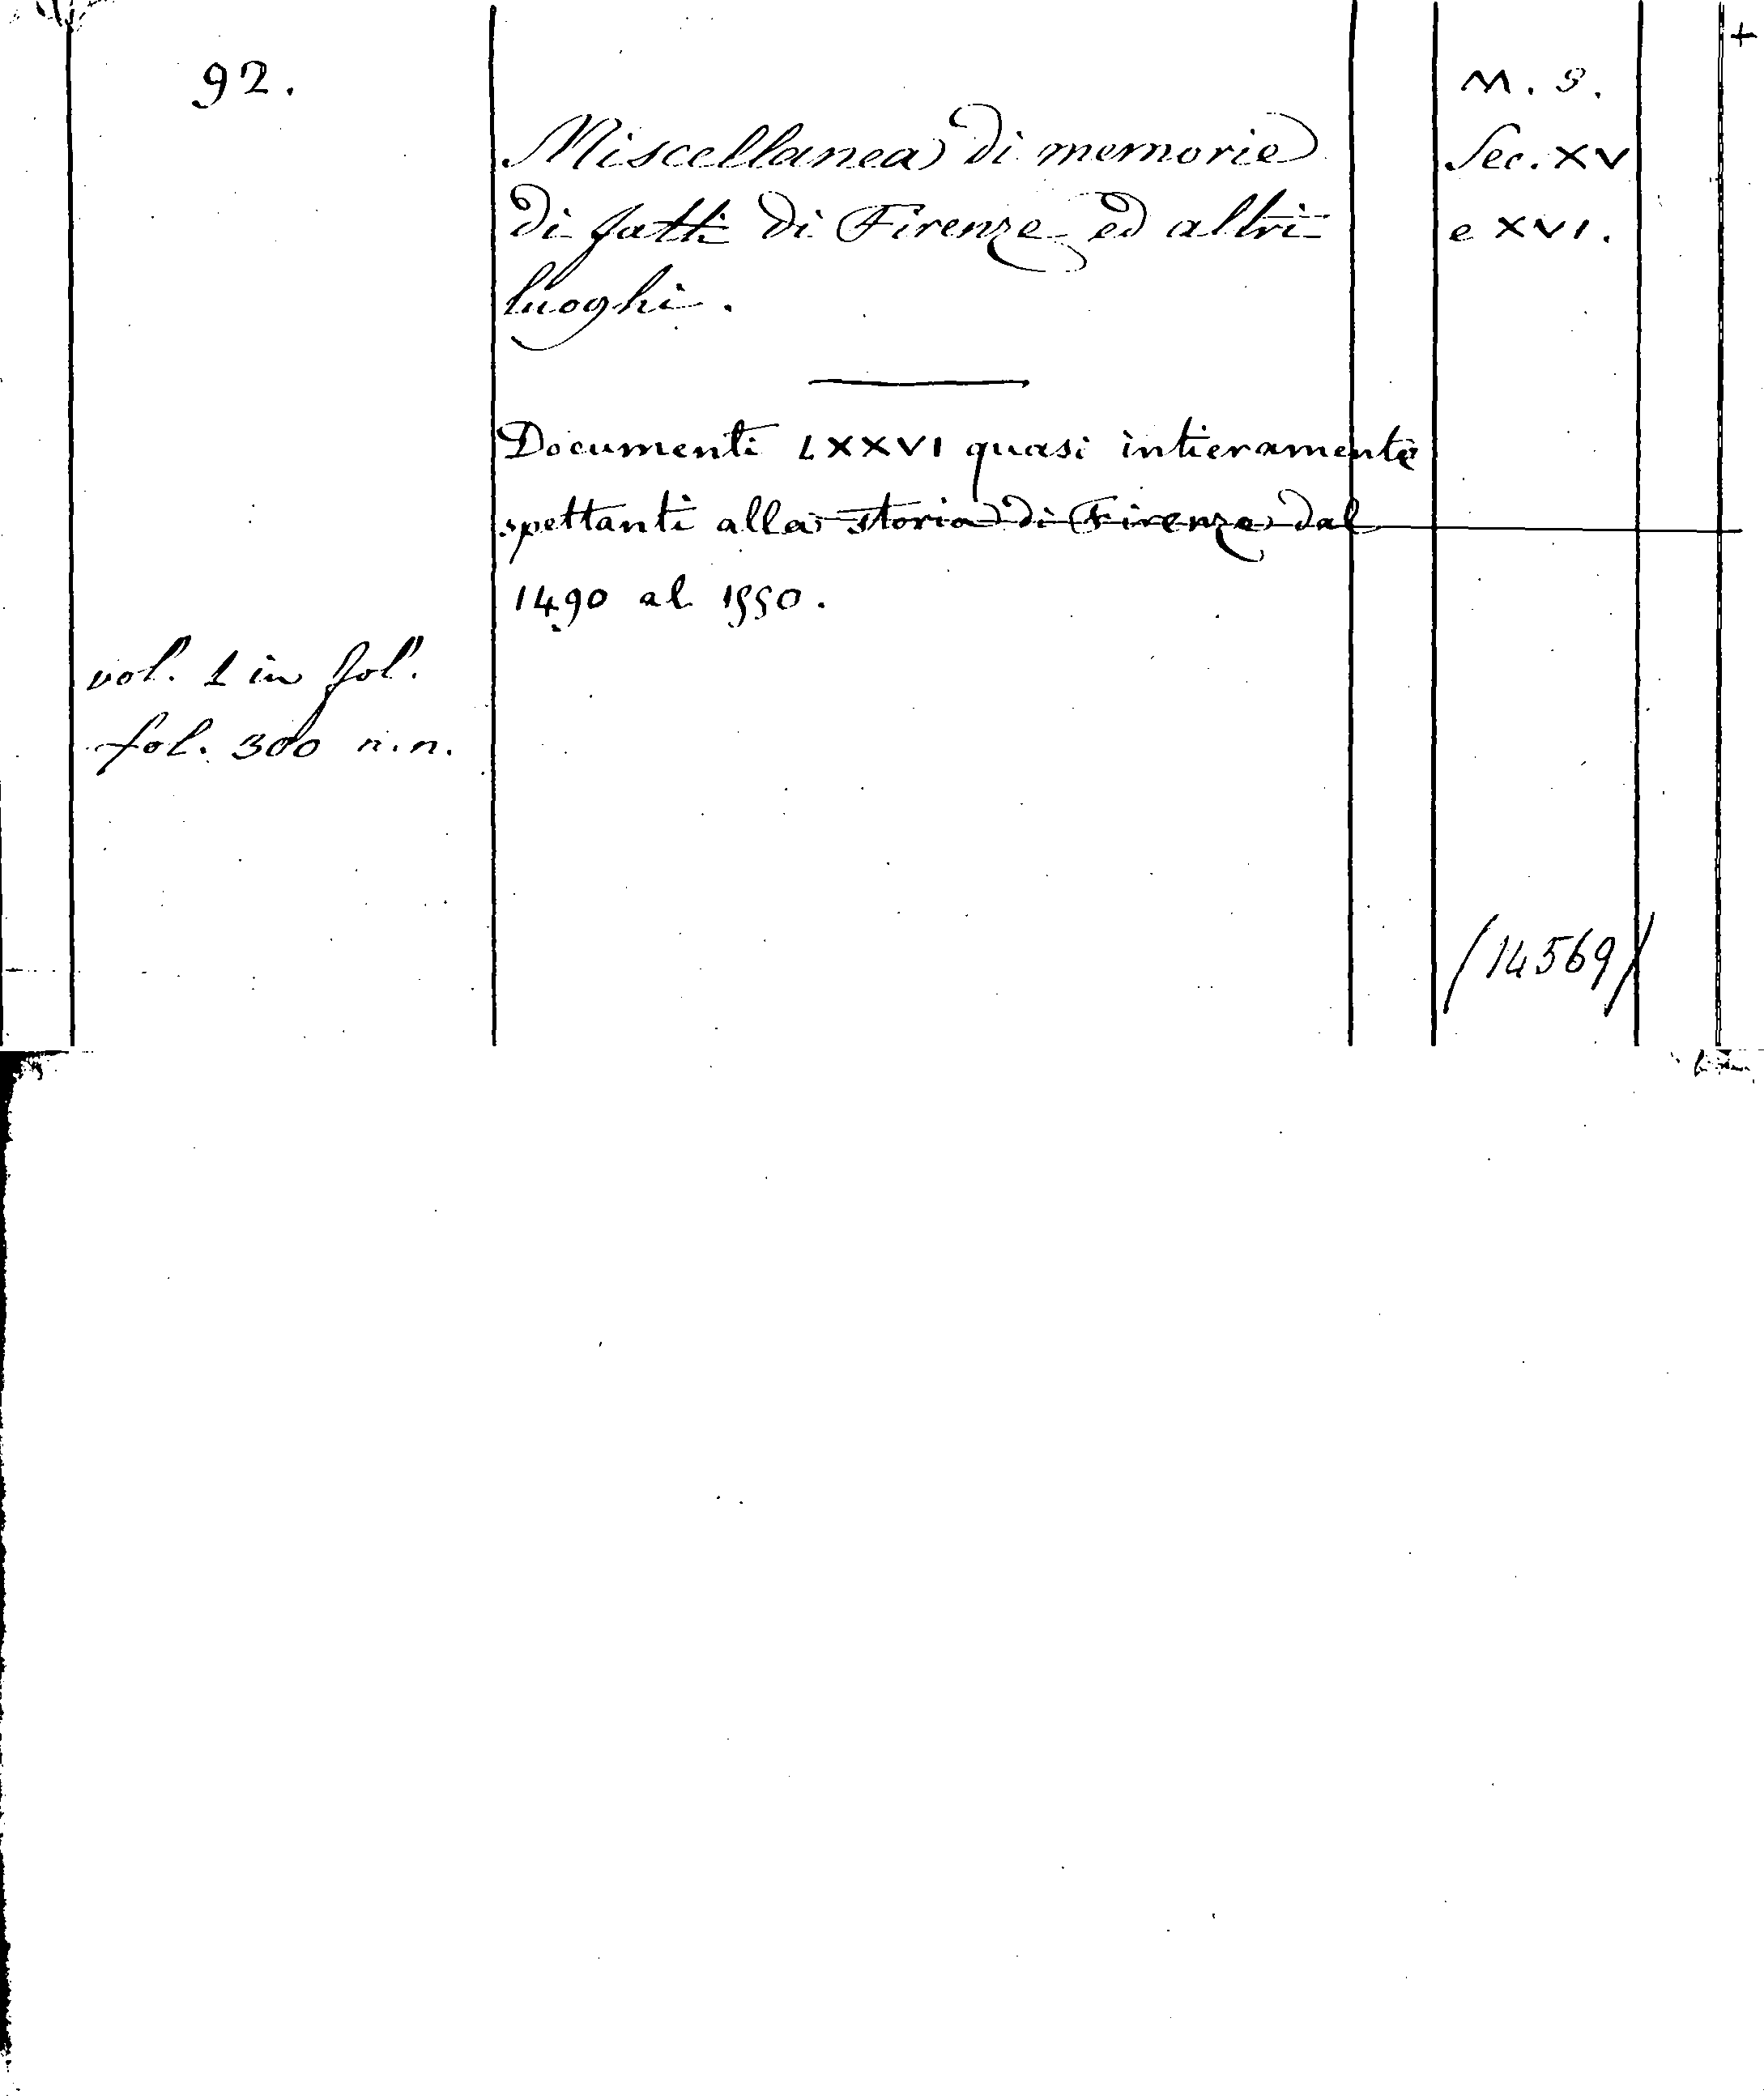 92.
Miscellanea di memorie
di fatti di Firenze ed altri
luoghi.
Documenti LXXVI quasi intieramente
spettanti alla storia di Firenze dal
1490 al 1550.
vol. 1 in fol.
fol. 300 n.n.
M. S.
Sec. XV
e XVI.
(14569)